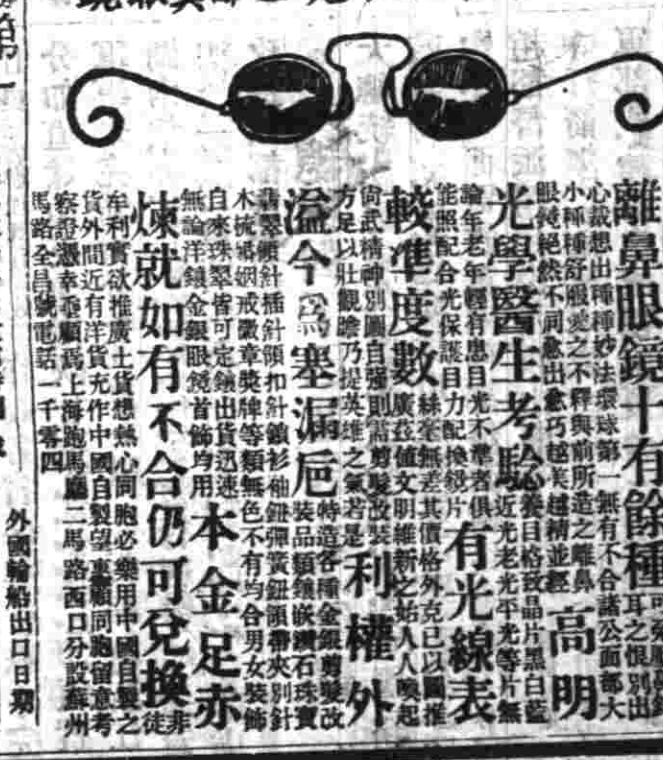 離鼻眼鏡十有餘種
耳之恨別出
心裁想出種種妙法環球第一無有不合諸公面部大
小種種舒服愛之不釋與前所造之離鼻
眼鏡絕然不同愈出愈巧越美越精並經
高明
光學醫生考驗
養目格致晶片黑白藍
近光老光平光等片無
論年老年輕有患目光不準者俱
能照配合光保護目力配換鏡片
有光線表
較準度數
絲毫無差其價格外克己以圖推
廣茲值文明維新之始人人喚起
尚武精神別圖自強則需剪髮改裝
方足以壯觀瞻乃提英雄之氣若是
利權外
溢今爲塞漏巵
特造各種金銀剪髮改
裝品類鑲嵌鑽石珠寶
翡翠領針插針領扣針鏈衫袖鈕彈簧鈕頭帶夾別針
木梳婚姻戒徽章獎牌等類無色不有均合男女裝飾
自來珠翠皆可定鑲出貨迅速
無論洋鑲金銀眼鏡首飾均用
本金足赤
煉就如有不合仍可兌換
非徒
牟利實欲推廣土貨想熱心同胞必樂用中國自製之
貨外間近有洋貨充作中國自製望惠顧同胞留意考
察證憑幸垂顧爲上海跑馬廳二馬路西口分設蘇州
馬路全昌號電話一千零四
外國輪船出口日期
第一